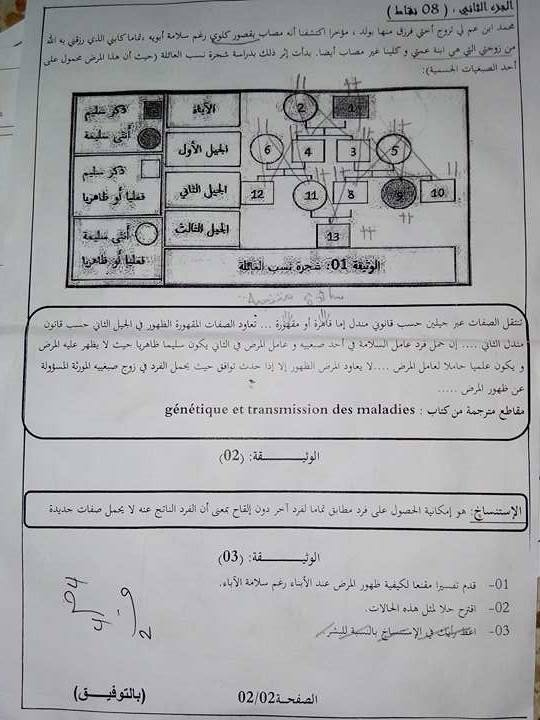 الجزء الثاني : ( 08 نقاط )
محمد ابن عم لي تزوج أختي فرزق منها بولد ، مؤخرا اكتشفنا أنه مصاب بقصور كلوي رغم سلامة أبويه ،تماما كابني الذي رزقني به الله
من زوجتي التي هي ابنة عمتي و كلينا غير مصاب أيضا. بدأت إثر ذلك بدراسة شجرة نسب العائلة (حيث أن هذا المرض محمول على
أحد الصبغيات الجسمية):
ذكر سليم
أنثى سليمة
ذكر سليم
فعليا أو ظاهريا
أنثى سليمة
فعليا أو ظاهريا
الآباء
الجيل الأول
الجيل الثاني
الجيل الثالث
2 1
6 4 3 5
12 11 8 9 10
13
الوثيقة 01: شجرة نسب العائلة
تنتقل الصفات عبر جيلين حسب قانوني مندل إما قاهرة أو مقهورة ... تعاود الصفات المقهورة الظهور في الجيل الثاني حسب قانون
مندل الثاني .... إن حمل فرد عامل السلامة في أحد صبغييه و عامل المرض في الثاني يكون سليما ظاهريا حيث لا يظهر عليه المرض
و يكون علميا حاملا لعامل المرض ....لا يعاود المرض الظهور إلا إذا حدث توافق حيث يحمل الفرد في زوج صبغييه المورثة المسؤولة
عن ظهور المرض .....
مقاطع مترجمة من كتاب : génétique et transmission des maladies
الوثيـــقة: (02)
الإستنساخ: هو إمكانية الحصول على فرد مطابق تماما لفرد آخر دون إلقاح بمعنى أن الفرد الناتج عنه لا يحمل صفات جديدة
الوثيـــقة: (03)
01- قدم تفسيرا مقنعا لكيفية ظهور المرض عند الأبناء رغم سلامة الآباء.
02- اقترح حلا لمثل هذه الحالات.
03- اعط رأيك في الإستنساخ بالنسبة للبشر.
الصفحة02/02
(بالتوفيــق)